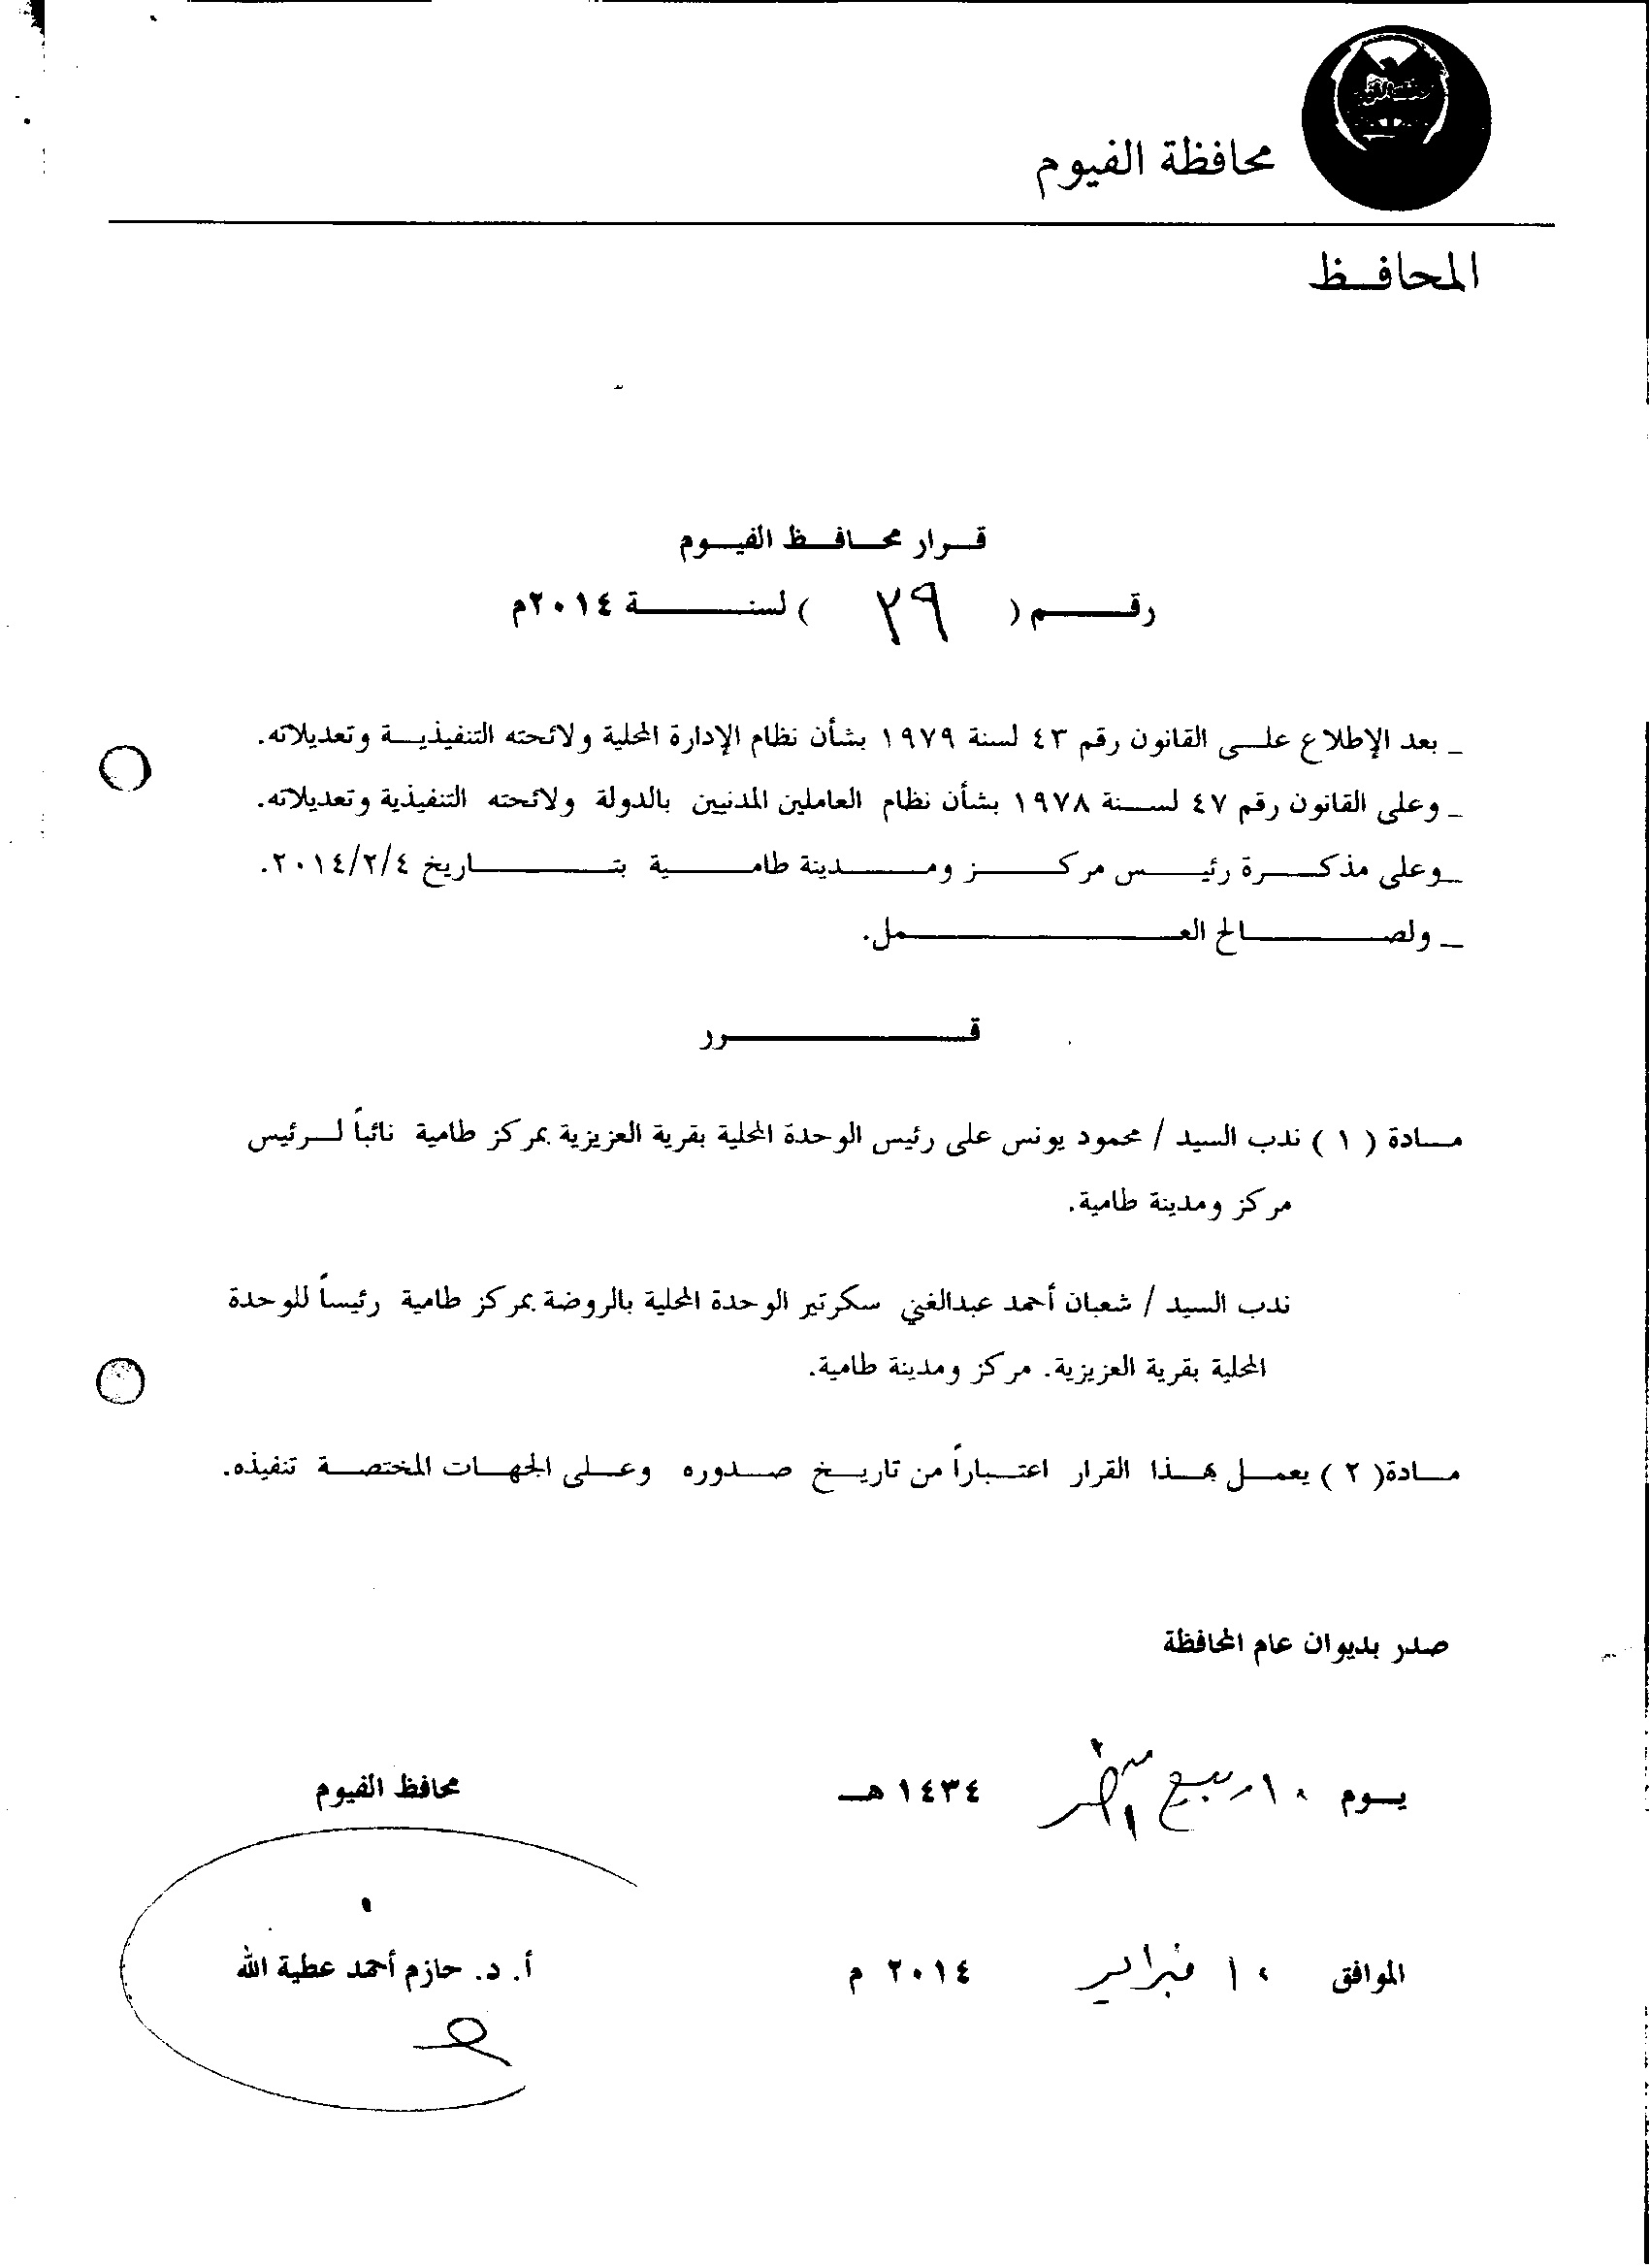 محافظة الفيوم
المحافظ
قرار محافظ الفيوم
رقم ( ٢٩ ) لسنة ٢٠١٤م
_ بعد الإطلاع على القانون رقم ٤٣ لسنة ١٩٧٩ بشأن نظام الإدارة المحلية ولائحته التنفيذية وتعديلاته.
_ وعلى القانون رقم ٤٧ لسنة ١٩٧٨ بشأن نظام العاملين المدنيين بالدولة ولائحته التنفيذية وتعديلاته.
_وعلى مذكرة رئيس مركز ومدينة طامية بتاريخ ٢٠١٤/٢/٤.
_ ولصالح العمل.
قرر
مادة ( ١ ) ندب السيد / محمود يونس على رئيس الوحدة المحلية بقرية العزيزية بمركز طامية نائباً لرئيس
مركز ومدينة طامية.
ندب السيد / شعبان أحمد عبدالغني سكرتير الوحدة المحلية بالروضة بمركز طامية رئيساً للوحدة
المحلية بقرية العزيزية. مركز ومدينة طامية.
مادة( ٢ ) يعمل بهذا القرار اعتباراً من تاريخ صدوره وعلى الجهات المختصة تنفيذه.
صدر بديوان عام المحافظة
يوم ١٠ ربيع آخر ١٤٣٤ هـ
محافظ الفيوم
الموافق ١٠ فبراير ٢٠١٤ م
أ. د. حازم أحمد عطية الله